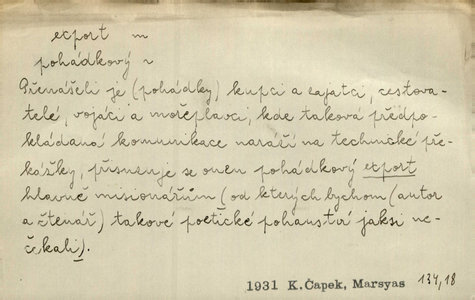 export m
pohádkový
Přenášeli je (pohádky) kupci a zajatci, cestova-
telé, vojáci a mořeplavci, kde taková předpo-
kládaná komunikace naráží na technické pře-
kážky, přisuzuje se onen pohádkový export
hlavně misionářům (od kterých bychom (autor
a čtenář) takové poetické pohanství jaksi ne-
čekali).
1931 K.Čapek, Marsyas 134,18